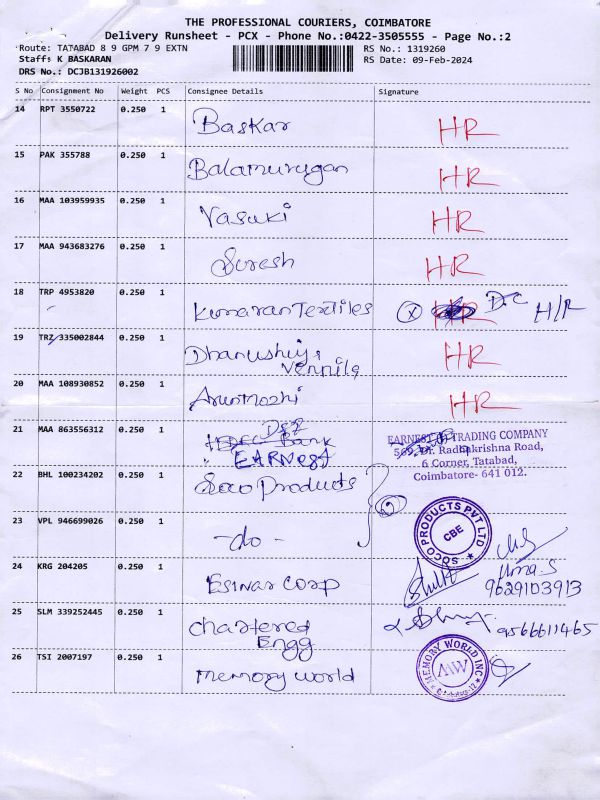 THE PROFESSIONAL COURIERS, COIMBATORE
Delivery Runsheet - PCX - Phone No.:0422-3505555 - Page No.:2
Route: TATABAD 8 9 GPM 7 9 EXTN RS No.: 1319260
Staff: K BASKARAN RS Date: 09-Feb-2024
DRS No.: DCJB131926002
S No Consignment No Weight PCS Consignee Details Signature
14 RPT 3550722 0.250 1 Baskar HR
15 PAK 355788 0.250 1 Balamurugan HR
16 MAA 103959935 0.250 1 Vasuki HR
17 MAA 943683276 0.250 1 Suresh HR
18 TRP 4953820 0.250 1 Kumaran Textiles X HR D.C H/R
19 TRZ 335002844 0.250 1 Dhanushiya HR
Vennila
20 MAA 108930852 0.250 1 Arunmozhi HR
21 MAA 863556312 0.250 1 Bank
EARNEST
EARNEST TRADING COMPANY
569, Dr. Radhakrishna Road,
6 Corner, Tatabad,
Coimbatore- 641 012.
22 BHL 100234202 0.250 1 Soco Products 2
SOCO PRODUCTS PVT LTD
CBE
23 VPL 946699026 0.250 1 -do-
24 KRG 204205 0.250 1 Eswar Corp
Uma.S
9629103913
25 SLM 339252445 0.250 1 Chartered
Engg
9566611465
26 TSI 2007197 0.250 1 memory world
MEMORY WORLD INC
MW